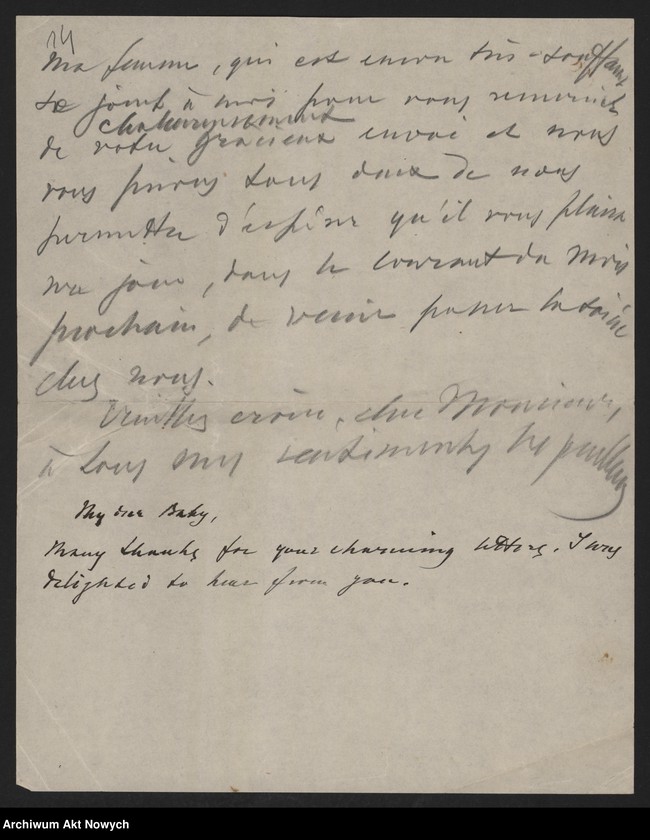 14
Ma femme, qui est encore très-souffrante
se joint à moi pour vous remercier
chaleureusement
de votre gracieux envoi et nous
vous prions tous deux de nous
permettre d'espérer qu'il vous plaira
un jour, dans le courant du mois
prochain, de venir passer la soirée
chez nous.
Veuillez croire, cher Monsieur,
à tous mes sentiments les meilleurs
My dear Baby,
Many thanks for your charming letters. I was
delighted to hear from you.
Archiwum Akt Nowych